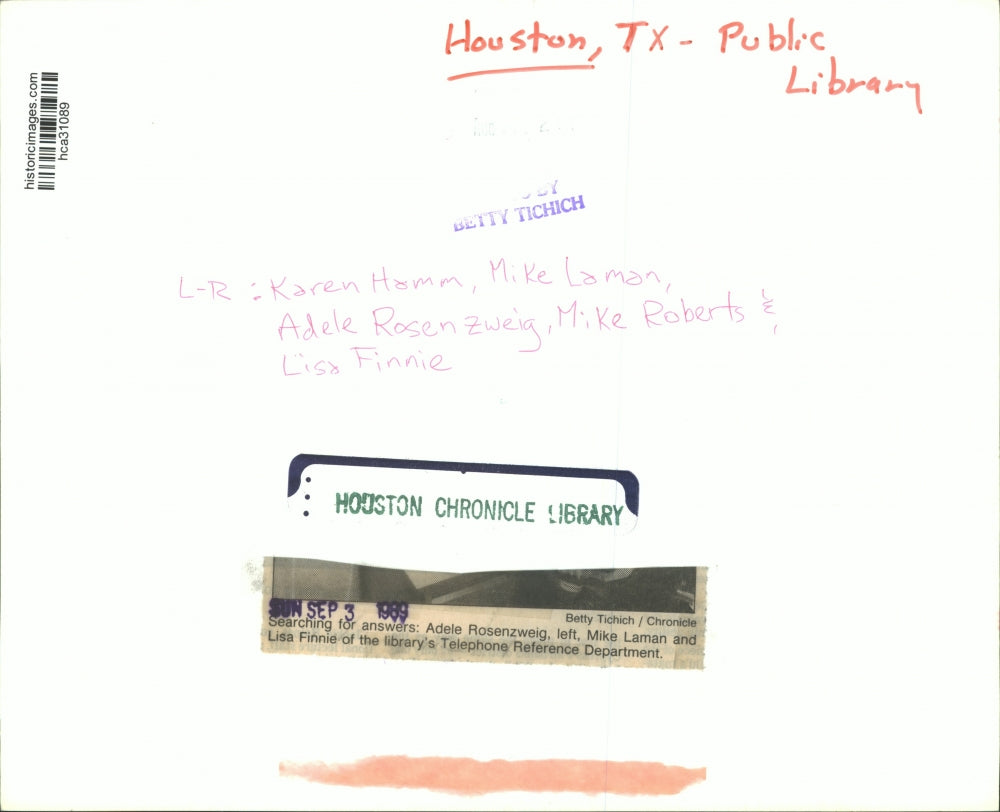 Houston, TX - Public
Library
historicimages.com
hca31089
BY
BETTY TICHICH
L-R : Karen Hamm, Mike Laman,
Adele Rosenzweig, Mike Roberts &
Lisa Finnie
HOUSTON CHRONICLE LIBRARY
SUN SEP 3 1989
Betty Tichich / Chronicle
Searching for answers: Adele Rosenzweig, left, Mike Laman and
Lisa Finnie of the library's Telephone Reference Department.